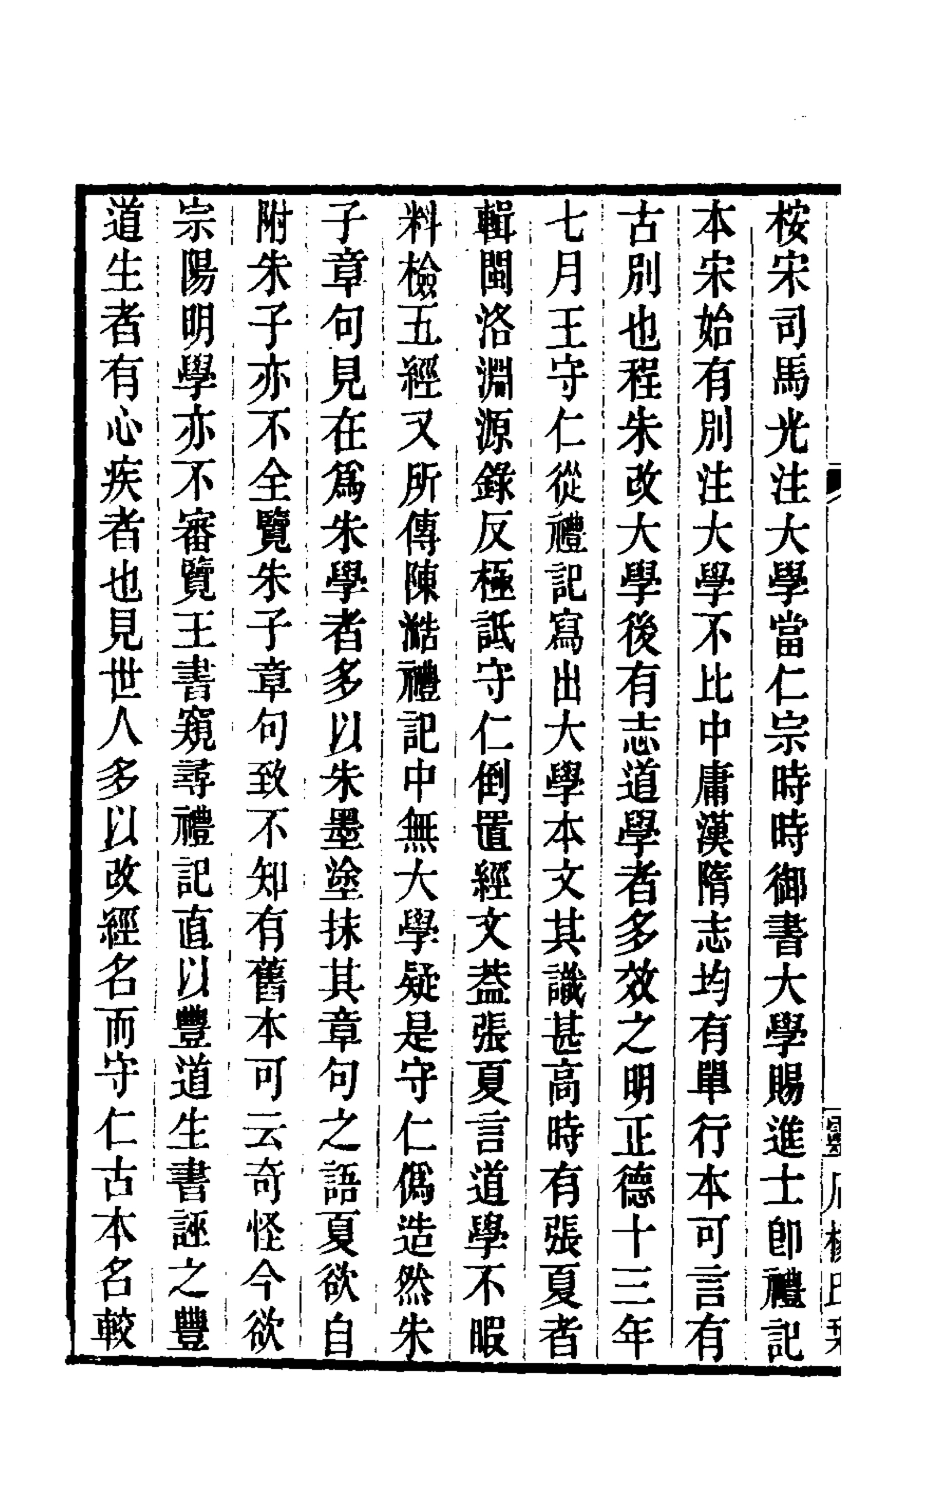 桉宋司馬光注大學當仁宗時時御書大學賜進士卽禮記
本宋始有別注大學不比中庸漢隋志均有單行本可言有
古別也程朱改大學後有志道學者多效之明正德十三年
七月王守仁從禮記寫出大學本文其識甚高時有張夏者
輯閩洛淵源錄反極詆守仁倒置經文葢張夏言道學不暇
料檢五經又所傳陳澔禮記中無大學疑是守仁僞造然朱
子章句見在爲朱學者多以朱墨塗抹其章句之語夏欲自
附朱子亦不全覽朱子章句致不知有舊本可云奇怪今欲
宗陽明學亦不審覽王書窺尋禮記直以豐道生書誣之豐
道生者有心疾者也見世人多以改經名而守仁古本名較